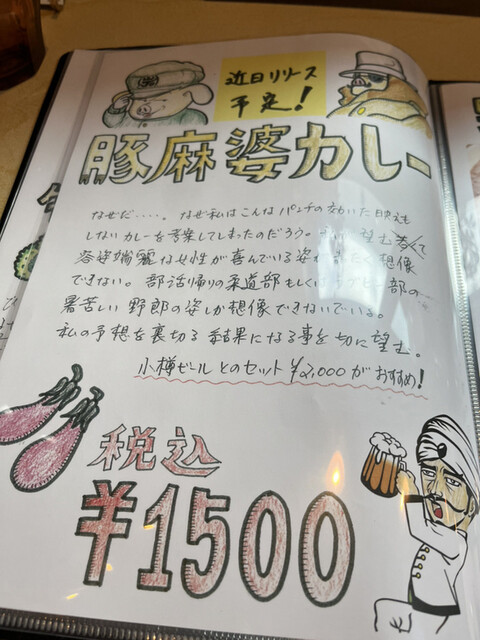 近日リリース
予定!
豚麻婆カレー
なぜだ.....。なぜ私はこんなパンチの効いた映えも
しないカレーを考案してしまったのだろう。望む
容姿端麗な女性が喜んでいる姿が 想像
できない。部活帰りの柔道部もしくはラグビー部の
暑苦しい野郎の姿しか想像できないでいる。
私の予想を裏切る結果になる事を切に望む。
小樽ビールとのセット¥2,000がおすすめ!
税込
¥1500